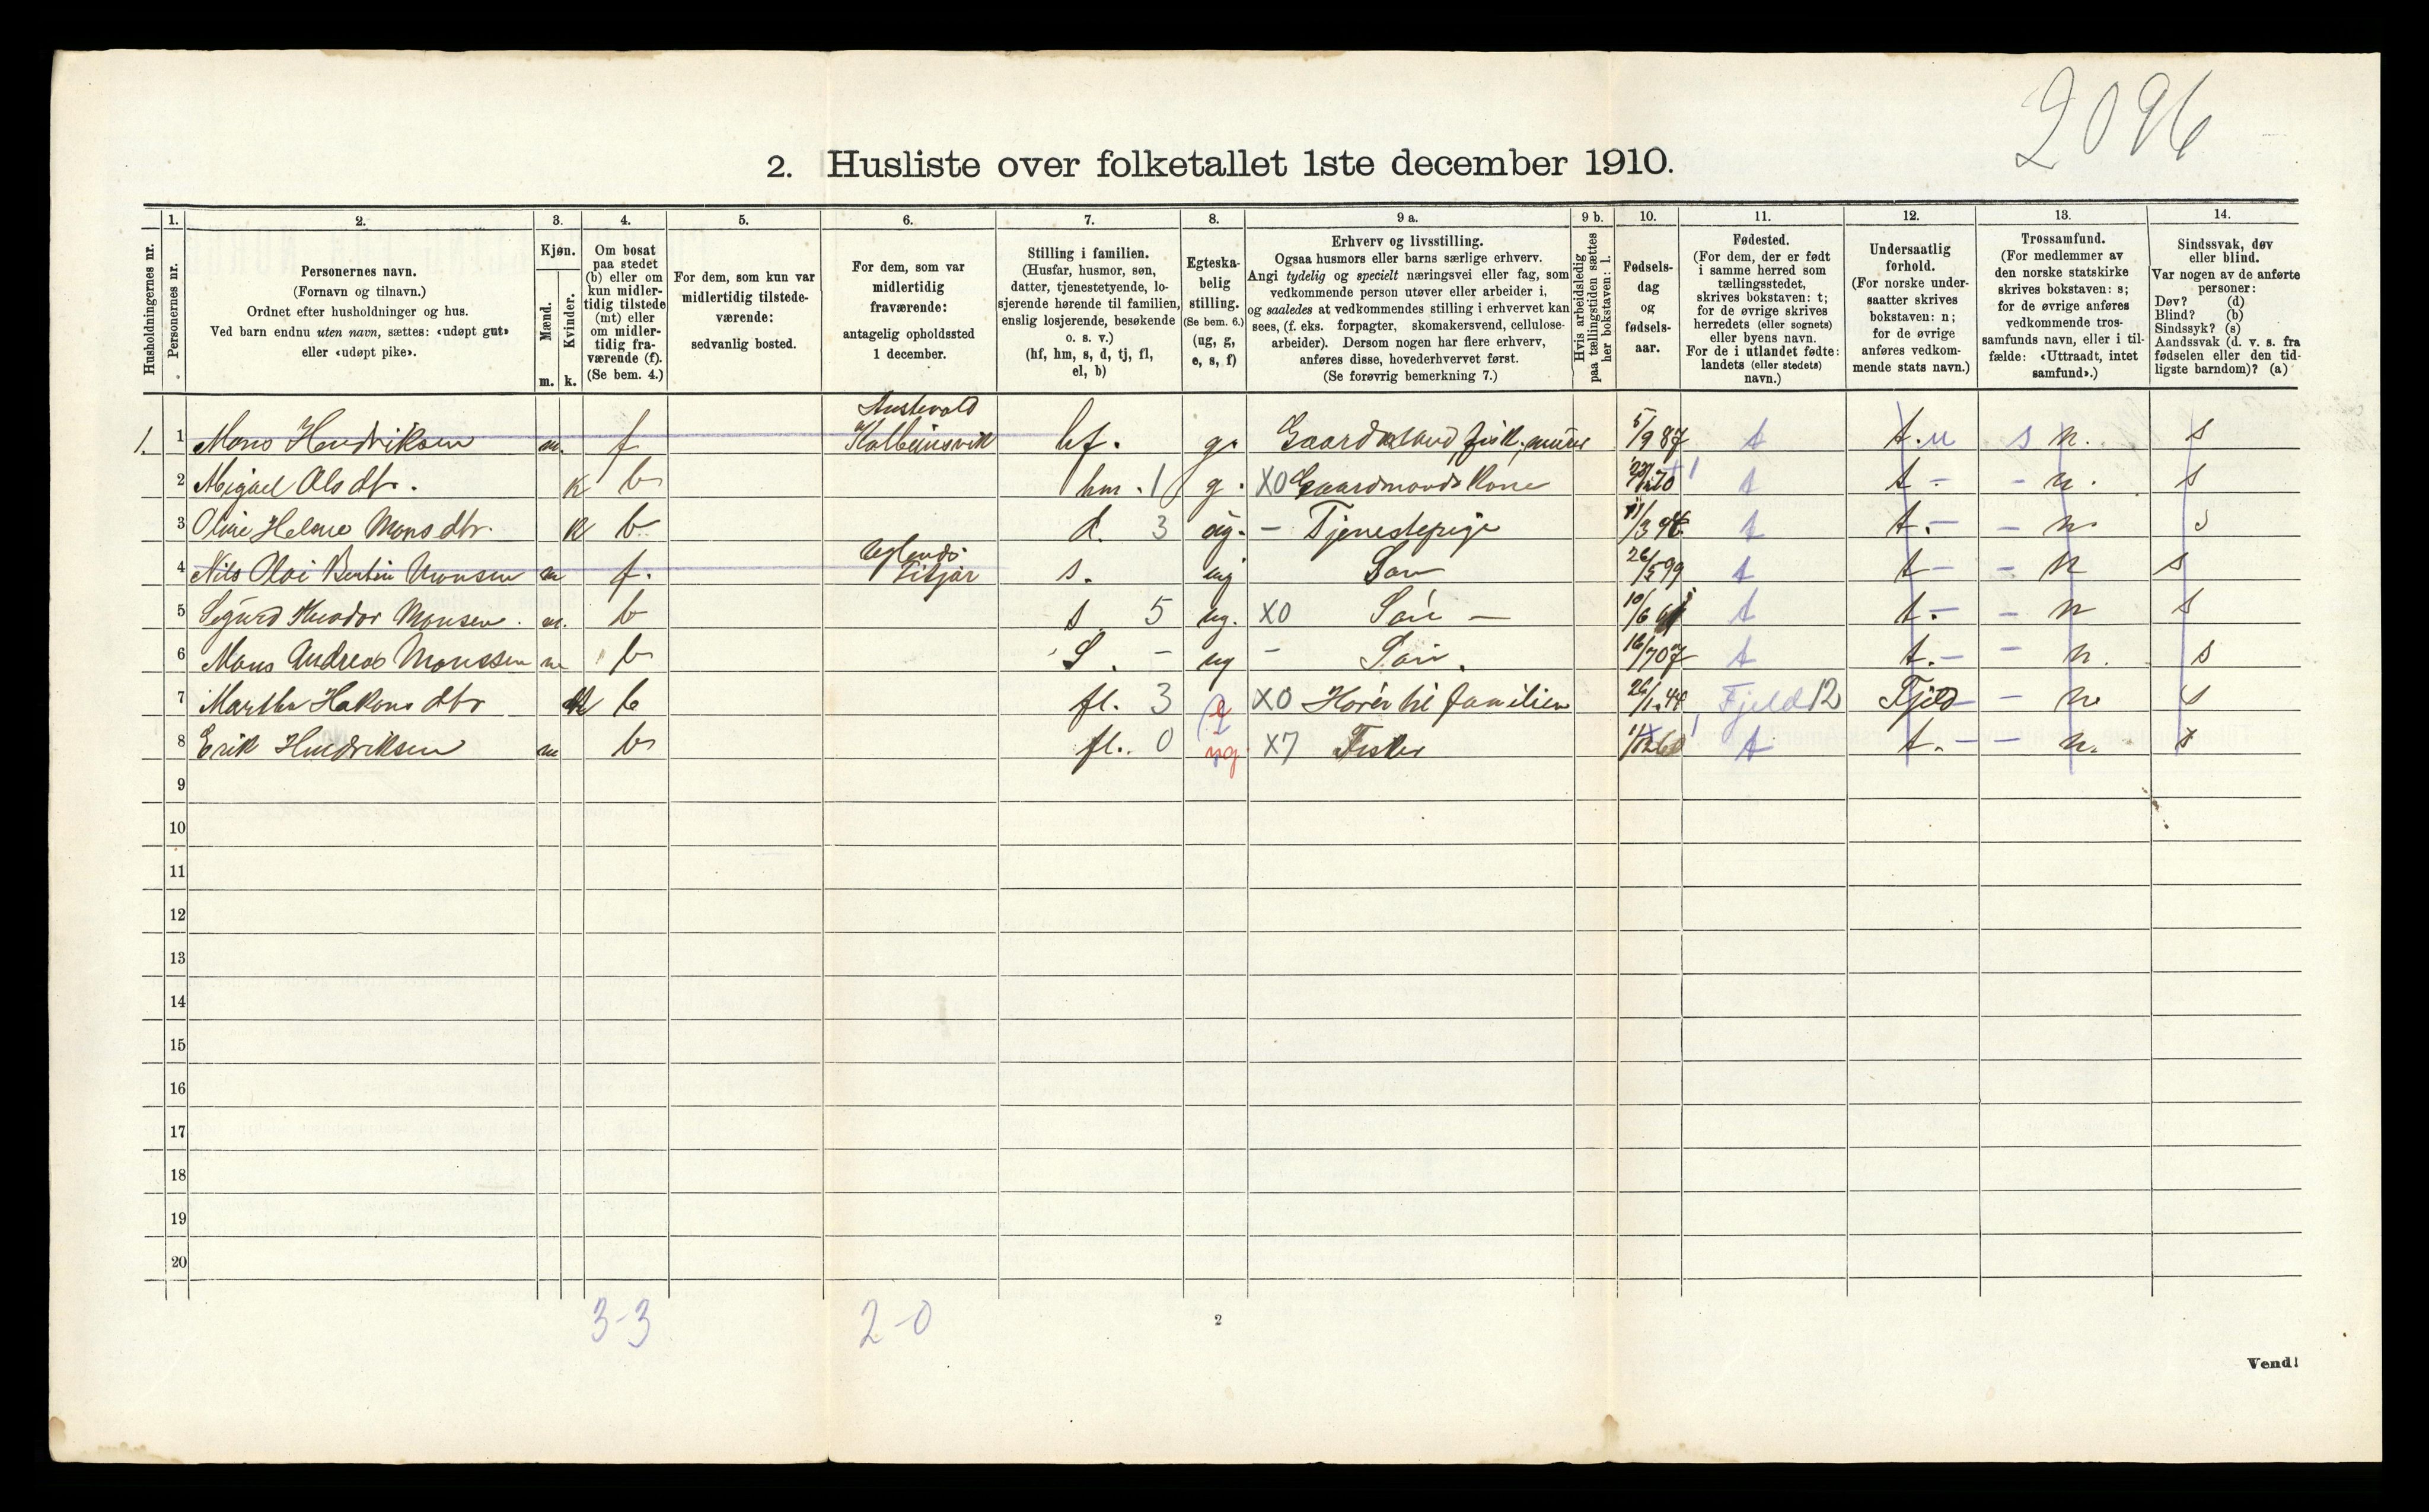 2096
2. Husliste over folketallet 1ste december 1910.
1. 2. 3. 4. 5. 6. 7. 8. 9 a. 9 b. 10. 11. 12. 13. 14.
Husholdningernes nr.
Personernes nr.
Personernes navn.
(Fornavn og tilnavn.)
Ordnet efter husholdninger og hus.
Ved barn endnu uten navn, sættes: «udøpt gut»
eller «udøpt pike».
Kjøn.
Mænd.
Kvinder.
m. k.
Om bosat
paa stedet
(b) eller om
kun midler-
tidig tilstede
(mt) eller
om midler-
tidig fra-
værende (f).
(Se bem. 4.)
For dem, som kun var
midlertidig tilstede-
værende:
sedvanlig bosted.
For dem, som var
midlertidig
fraværende:
antagelig opholdssted
1 december.
Stilling i familien.
(Husfar, husmor, søn,
datter, tjenestetyende, lo-
sjerende hørende til familien,
enslig losjerende, besøkende
o. s. v.)
(hf, hm, s, d, tj, fl,
el, b)
Egteska-
belig
stilling.
(Se bem. 6.)
(ug, g,
e, s, f)
Erhverv og livsstilling.
Ogsaa husmors eller barns særlige erhverv.
Angi tydelig og specielt næringsvei eller fag, som
vedkommende person utøver eller arbeider i,
og saaledes at vedkommendes stilling i erhvervet kan
sees, (f. eks. forpagter, skomakersvend, cellulose-
arbeider). Dersom nogen har flere erhverv,
anføres disse, hovederhvervet først.
(Se forøvrig bemerkning 7.)
Hvis arbeidsledig
paa tællingstiden sættes
her bokstaven: l.
Fødsels-
dag
og
fødsels-
aar.
Fødested.
(For dem, der er født
i samme herred som
tællingsstedet,
skrives bokstaven: t;
for de øvrige skrives
herredets (eller sognets)
eller byens navn.
For de i utlandet fødte:
landets (eller stedets)
navn.)
Undersaatlig
forhold.
(For norske under-
saatter skrives
bokstaven: n;
for de øvrige
anføres vedkom-
mende stats navn.)
Trossamfund.
(For medlemmer av
den norske statskirke
skrives bokstaven: s;
for de øvrige anføres
vedkommende tros-
samfunds navn, eller i til-
fælde: «Uttraadt, intet
samfund».)
Sindssvak, døv
eller blind.
Var nogen av de anførte
personer:
Døv? (d)
Blind? (b)
Sindssyk? (s)
Aandssvak (d. v. s. fra
fødselen eller den tid-
ligste barndom)? (a)
Austevold
1. 1 Mons Hendriksen m. f Kolbeinsvik hf. g. fisk, 5/9 87 t t. n s n. s
2 Abigael Olsdtr. k b hm. 1 g. X0 Gaardmands Kone 70 t t - - n. s
3 Oline Helene Monsdtr. k b d. 3 ug. - Tjenestepige 11/3 t t. - - n. s
4 Nils Olai Bertin Monsen m f. Fitjar s. ug Søn 26/5 99 t t - - n s
5 Sigurd Teodor Monsen. m. b s 5 ug. X0 Søn - 10/6 t t. - - n s
6 Mons Andreas Monssen m b S. - ug - Søn. 16/7 07 t t. - - n. s
7 Martha Hakons dtr k b fl. 3 e X0 Hører til familien 26/1 44 Fjeld 12 Fjeld - n. s
8 Erik Hendriksen m b fl. 0 ug X7 Fisker t t. - - n. s
9
10
11
12
13
14
15
16
17
18
19
20
3-3 2-0
2
Vend!